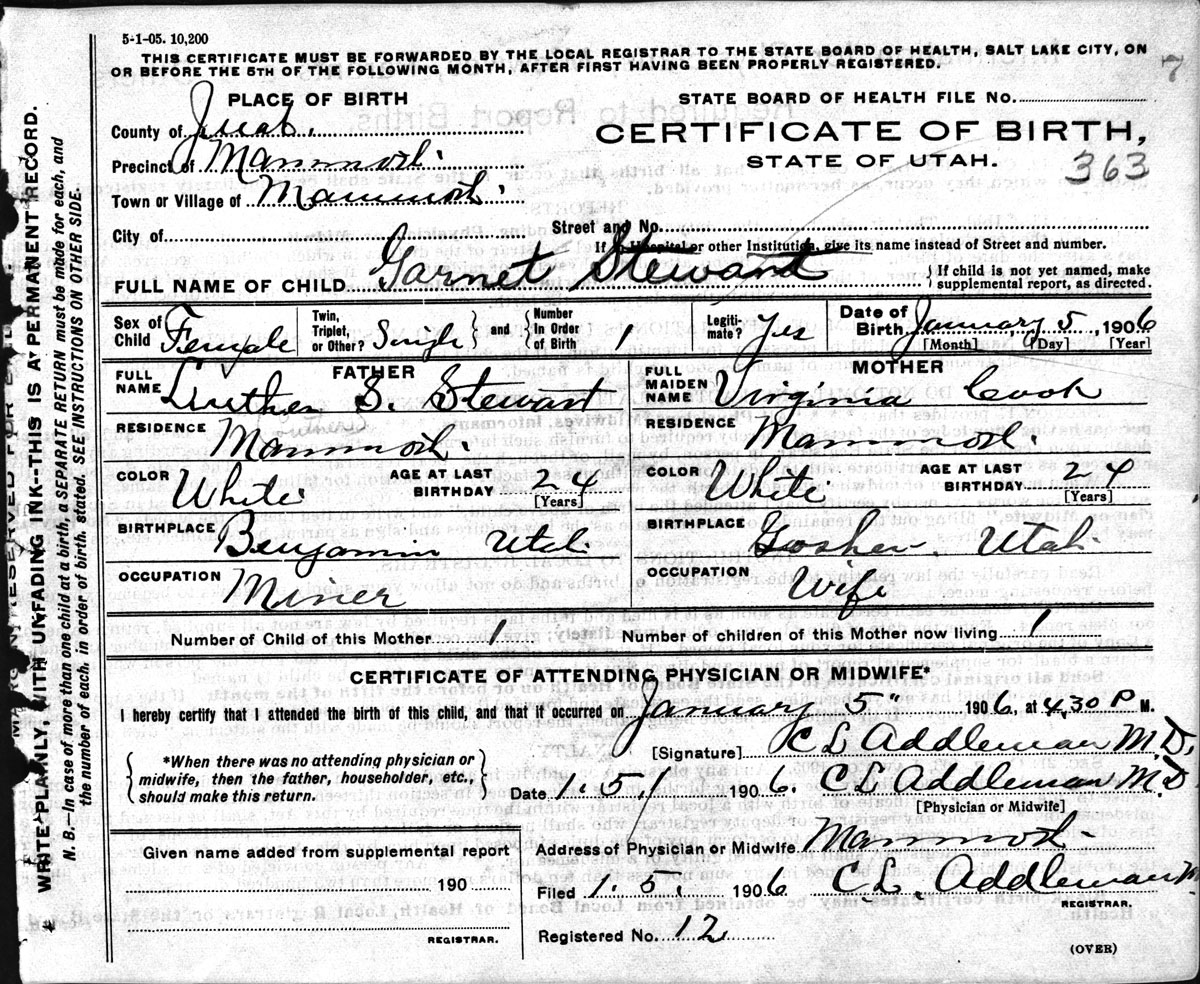 5-1-05. 10,200
THIS CERTIFICATE MUST BE FORWARDED BY THE LOCAL REGISTRAR TO THE STATE BOARD OF HEALTH, SALT LAKE CITY, ON
OR BEFORE THE 5TH OF THE FOLLOWING MONTH, AFTER FIRST HAVING BEEN PROPERLY REGISTERED.
7
PLACE OF BIRTH
STATE BOARD OF HEALTH FILE NO.
County of Juab.
CERTIFICATE OF BIRTH,
Precinct of Mammoth.
STATE OF UTAH.
363
Town or Village of Mammoth.
City of
Street and No.
If in Hospital or other Institution, give its name instead of Street and number.
FULL NAME OF CHILD Garnet Stewart
{If child is not yet named, make
supplemental report, as directed.
Sex of Child Female
Twin, Triplet, or Other? Single } and { Number In Order of Birth 1
Legitimate? Yes
Date of Birth January 5, 1906
[Month] [Day] [Year]
FATHER
MOTHER
FULL NAME Luther S. Stewart
FULL MAIDEN NAME Virginia Cook
RESIDENCE Mammoth.
RESIDENCE Mammoth.
COLOR White AGE AT LAST BIRTHDAY 24 [Years]
COLOR White AGE AT LAST BIRTHDAY 24 [Years]
BIRTHPLACE Benjamin Utah.
BIRTHPLACE Goshen. Utah.
OCCUPATION Miner
OCCUPATION Wife
Number of Child of this Mother 1
Number of children of this Mother now living 1
CERTIFICATE OF ATTENDING PHYSICIAN OR MIDWIFE*
I hereby certify that I attended the birth of this child, and that it occurred on January 5" 1906, at 4,30 P M.
{*When there was no attending physician or
midwife, then the father, householder, etc.,
should make this return.}
[Signature] C L Addleman M.D.
Date 1. 5. / 1906. C L Addleman M.D
[Physician or Midwife]
Given name added from supplemental report
190
REGISTRAR.
Address of Physician or Midwife Mammoth
Filed 1. 5. 1906 C.L. Addleman M
REGISTRAR.
Registered No. 12.
(OVER)
WRITE PLAINLY, WITH UNFADING INK--THIS IS A PERMANENT RECORD.
N. B.—In case of more than one child at a birth, a SEPARATE RETURN must be made for each, and
the number of each, in order of birth, stated. SEE INSTRUCTIONS ON OTHER SIDE.